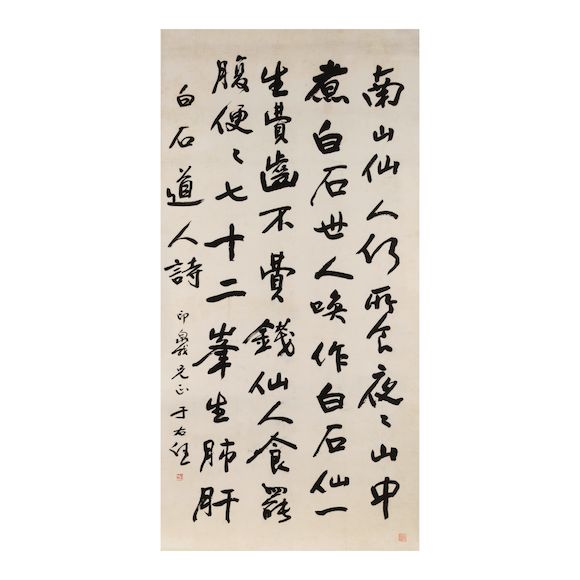 南山仙人何所食夜〻山中
煮白石世人喚作白石仙一
生費齒不費錢仙人食罷
腹便〻七十二峯生肺肝
白石道人詩 印泉我兄正 于右任